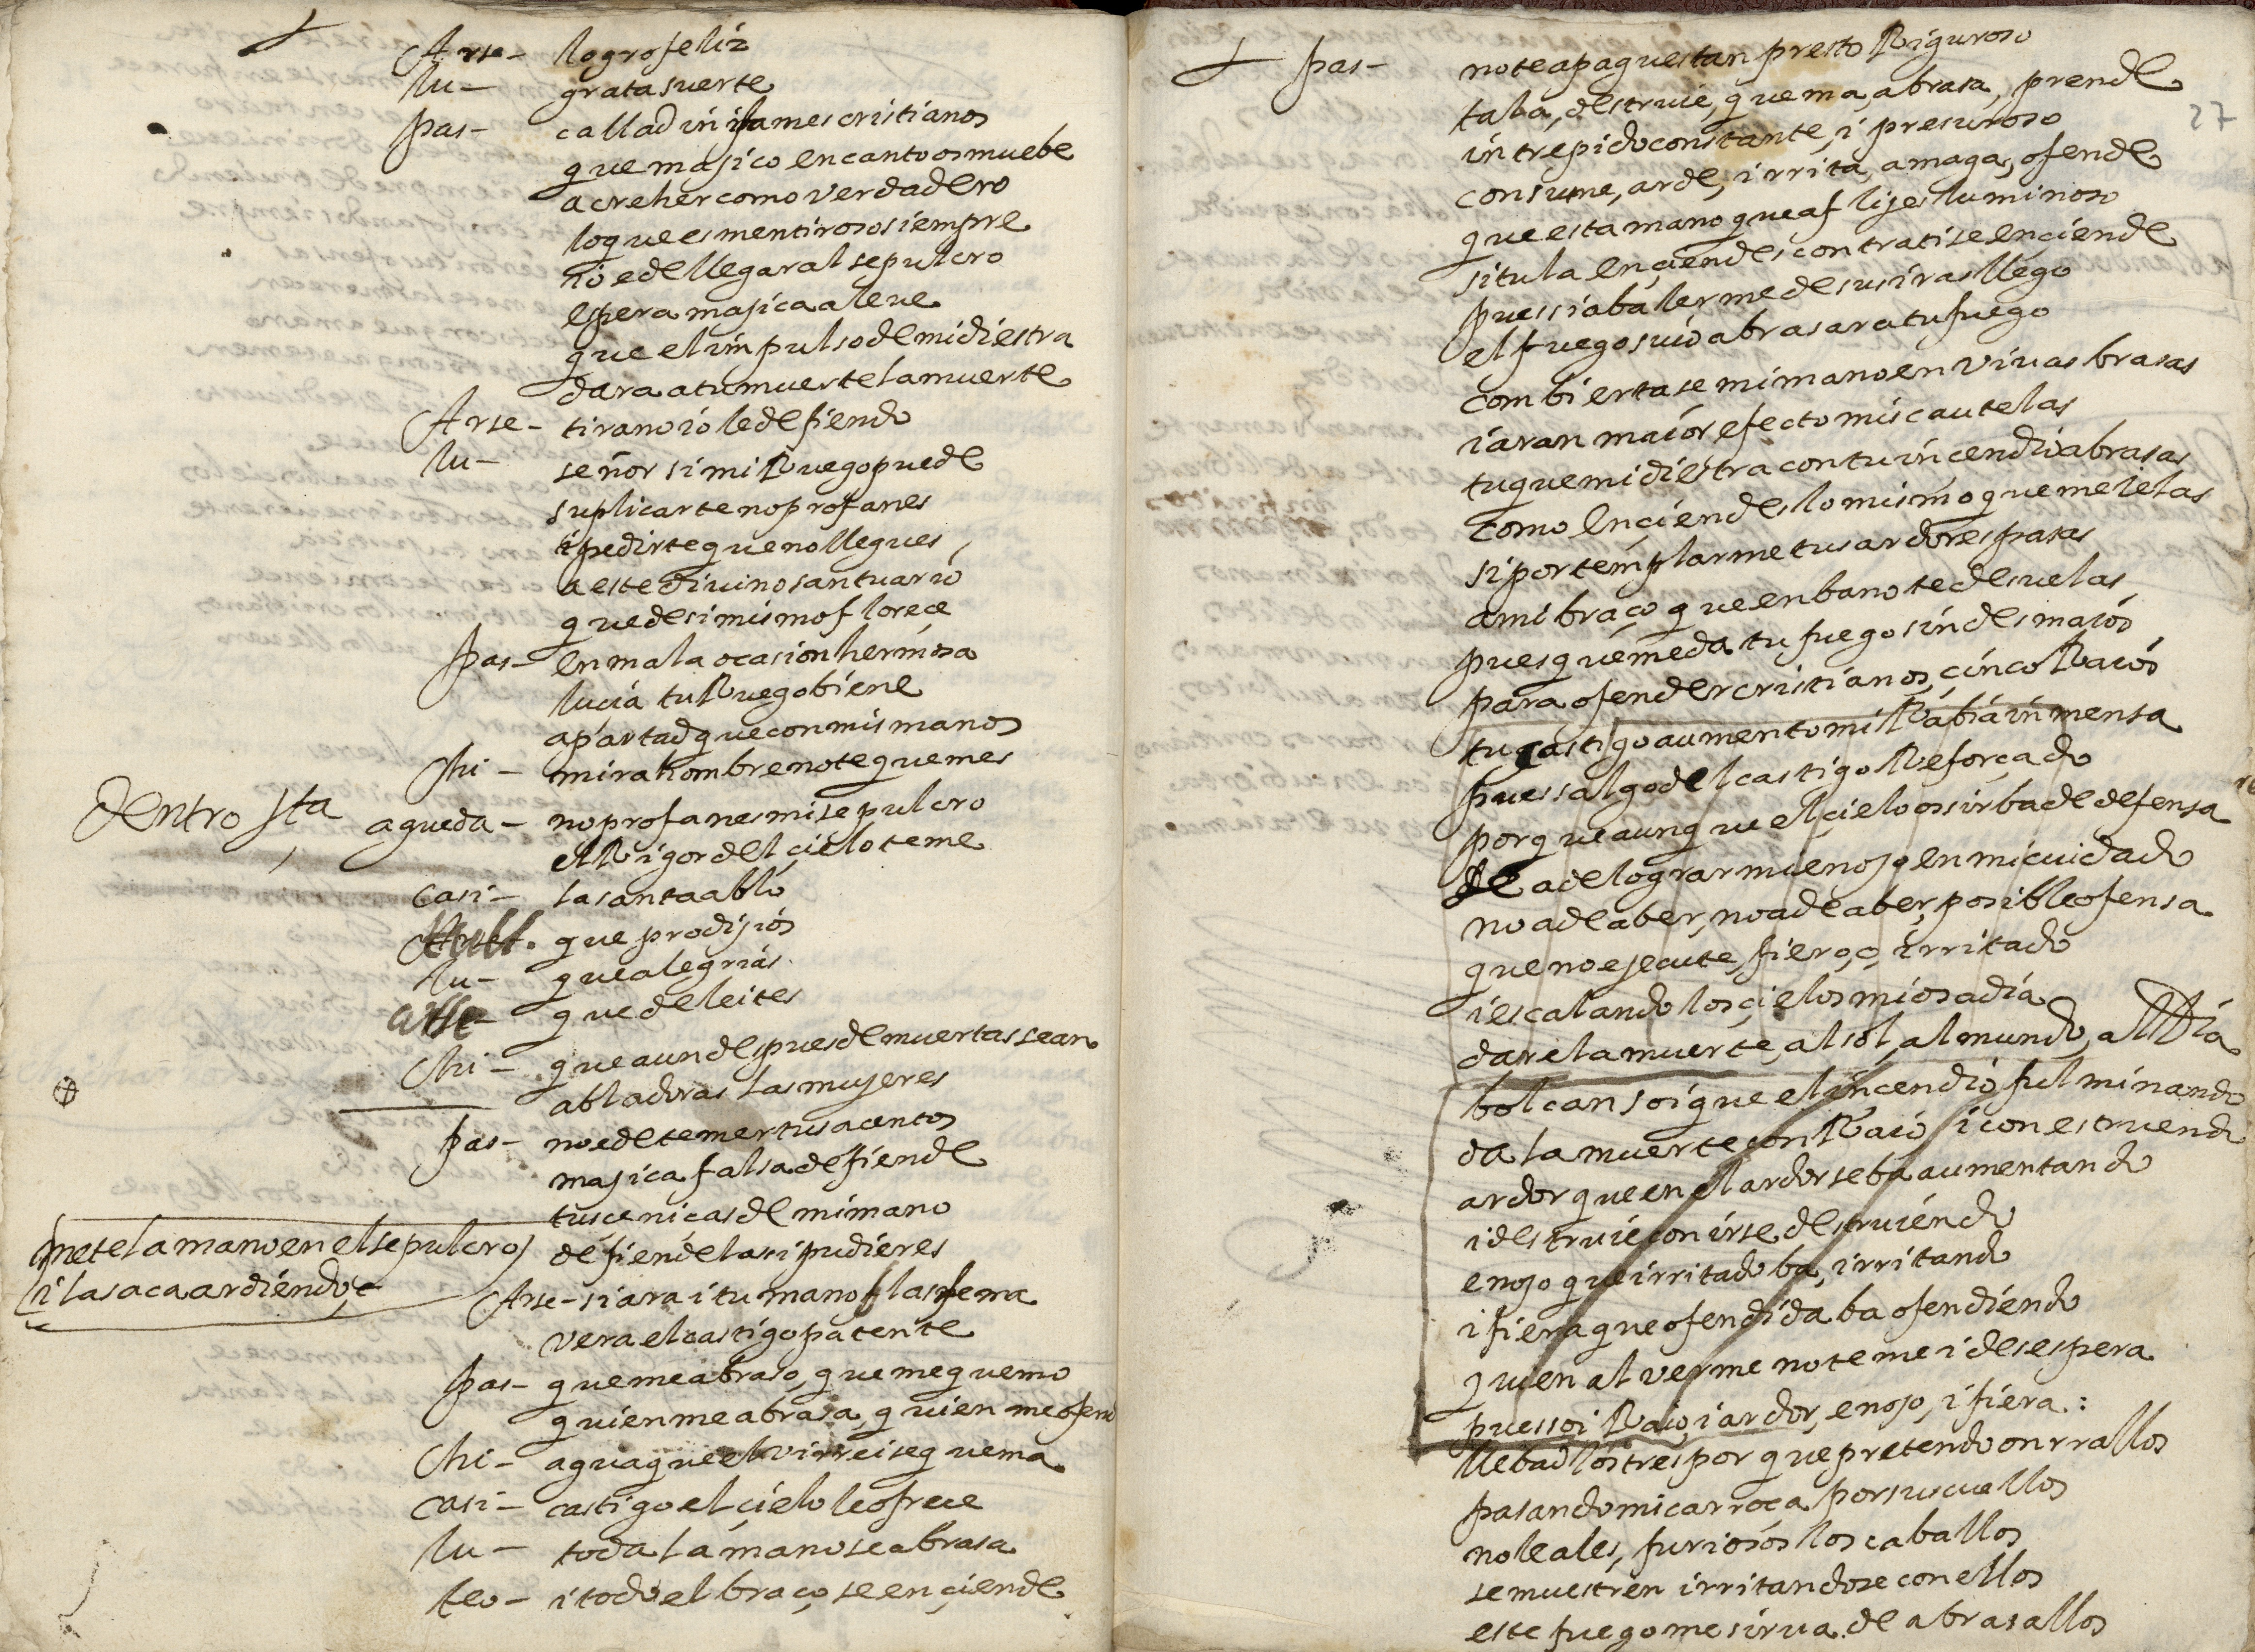 Arse- logro feliz
lu- grata suerte
pas- callad infames cristianos
que majico encanto os muebe
a creher como verdadero
lo que es mentiroso siempre
io e de llegar al sepulcro
espera majica aleue
que el impulso de mi diestra
dara a tu muerte la muerte
Arse- tirano io le defiendo
lu- señor si mi Ruego puede
suplicarte no profanes
i pedirte que no llegues
a este diuino santuario
que de si mismo florece
pas- en mala ocasion hermosa
lucia tu Ruego biene
apartad que con mis manos
chi- mira hombre no te quemes
dentro sta agueda- no profanes mi sepulcro
el Rigor del çielo teme
casi- la santa ablo
que prodijios
lu- que alegrias
arse- que deleites
chi- que aun despues de muertas sean
abladoras las mujeres
pas- no e de temer tus acentos
majica falsa defiende
tus cenicas de mi mano
mete la mano en el sepulcro
i la saca ardiendo
defiendelas si pudieres
Arse- si ara i tu mano blasfema
vera el castigo patente
pas- que me abraso, que me quemo
quien me abrasa, quien me ofend
chi- agua que el virrei se quema
casi- castigo el çielo le ofrece
lu- toda la mano se abrasa
teo- i todo el braço se ençiende
27
pas- no te apagues tan presto Riguroso
tala, destruie, quema, abrasa, prende
intrepido constante, i presuroso
consume, arde, irrita, amaga, ofende
que esta mano que aflijes luminoso
si tu la ençiendes contra ti se enciende
pues si a balerme de sus iras llego
el fuego suio abrasara tu fuego
combiertase mi mano en viuas brasas
i aran maior efecto mis cautelas
tu que mi diestra con tu incendio abrasas
como ençiendes lo mismo que me ielas
si por templarme tus ardores pasas
a mi braço que en bano te desuelas
pues que me da tu fuego sin desmaios
para ofender cristianos, cinco Raios
tu castigo aumento mi Rabia inmensa
pues salgo del castigo Reforçado
porque aunque el çielo os sirba de defensa
se a de lograr mi enojo en mi cuidado
no a de aber, no a de aber, posible ofensa
que no ejecute, fiero, o, irritado
i escalando los çielos mi osadia
dare la muerte, al sol, al mundo, al Dia
bolcan soi que el incendio fulminando
da la muerte con Raio i con estruendo
ardor que en el ardor se ba aumentando
i destruie con irse destruiendo
enojo que irritado ba, irritando
i fiera que ofendida ba ofendiendo
quien al verme no teme i desespera
pues soi Raio, i ardor, enojo, i fiera:
llebad los tres por que pretendo onrrallos
pasando mi carroça por sus cuellos
no leales, furiosos los caballos
se muestren irritandose con ellos
este fuego me sirua de abrasallos